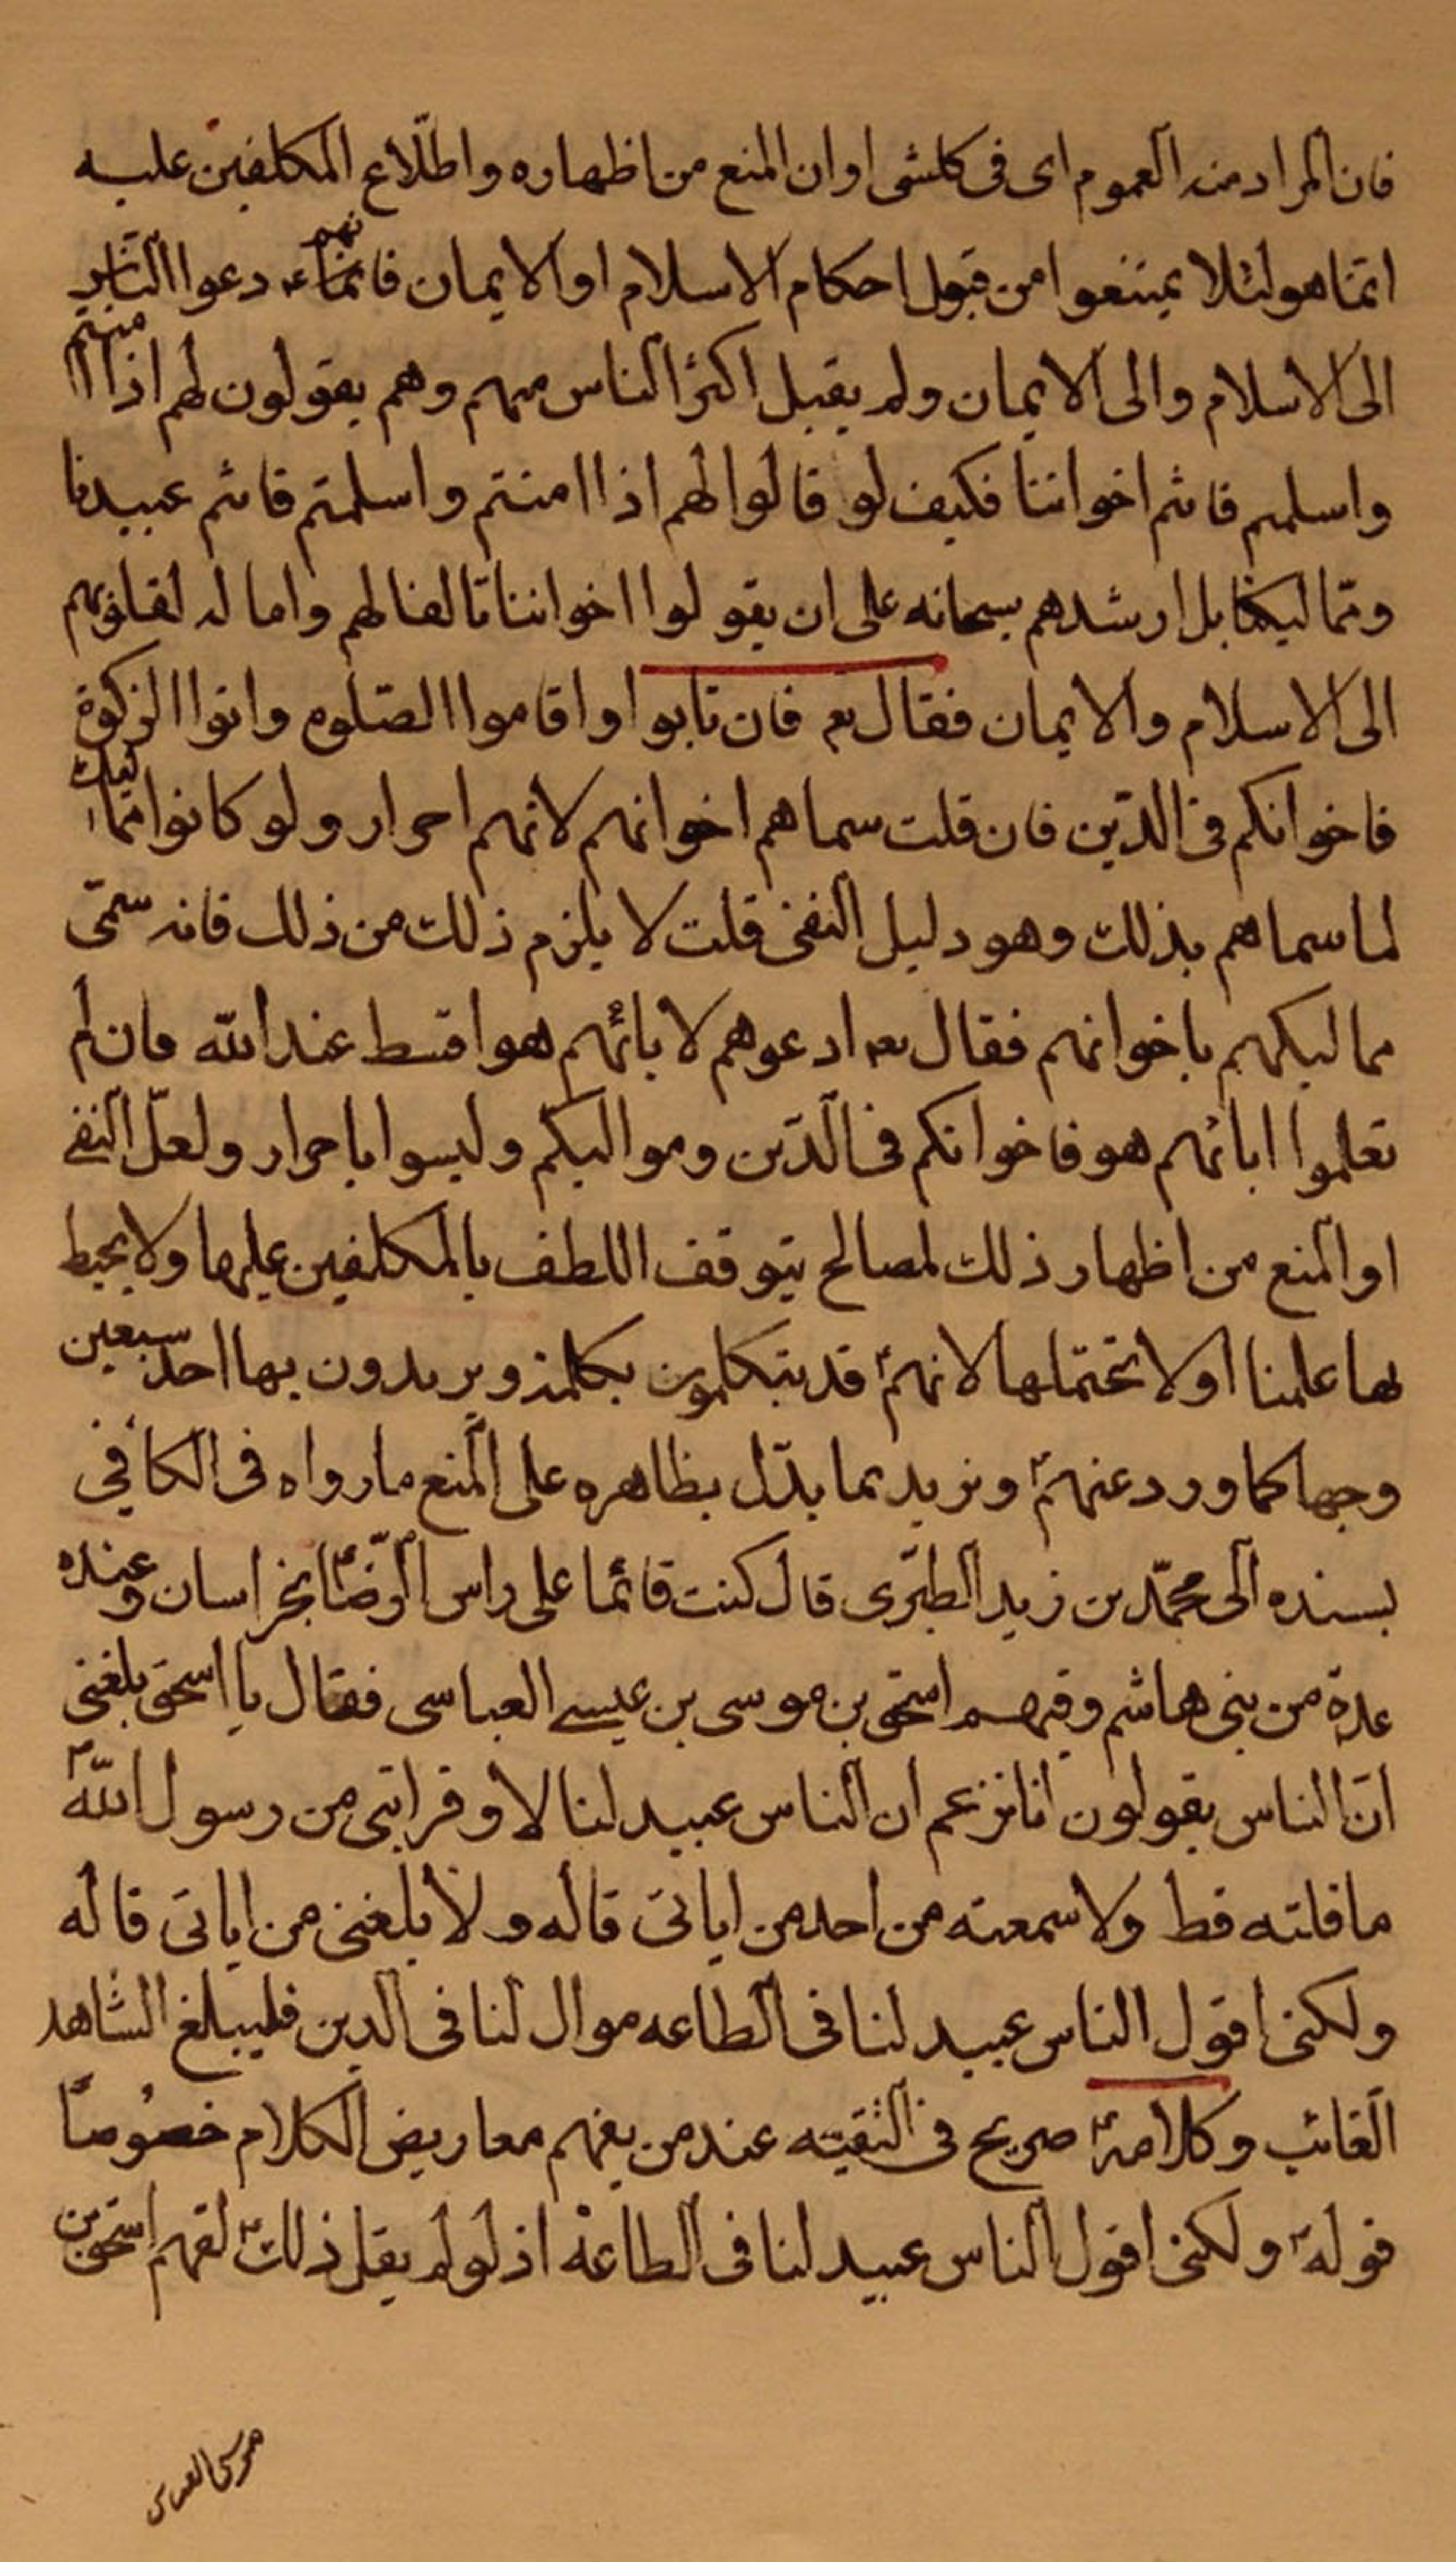 فان المراد منه العموم ای فی کلشی او ان المنع من اظهاره و اطلّاع المکلفین علیه
انّما هو لئلا یمتنعوا من قبول احکام الاسلام او الایمان فانهم دعوا الناس
الی الاسلام والی الایمان ولم یقبل اکثر الناس منهم وهم یقولون لهم اذا امنتم
واسلمتم فانتم اخواننا فکیف لو قالوا لهم اذا امنتم واسلمتم فانتم عبیدنا
وممالیکنا بل ارشدهم سبحانه علی ان یقولوا اخواننا تالفا لهم وامالة لقلوبهم
الی الاسلام والایمان فقال تعم فان تابوا واقاموا الصلوة واتوا الزکوة
فاخوانکم فی الدّین فان قلت سماهم اخوانهم لانهم احرار ولو کانوا ممالیک
لما سماهم بذلک وهو دلیل النفی قلت لا یلزم ذلک من ذلک فانه سمّی
ممالیکهم باخوانهم فقال تعم ادعوهم لابائهم هو اقسط عند الله فان لم
تعلموا ابائهم هو فاخوانکم فی الدّین وموالیکم ولیسوا باحرار ولعلّ النفی
او المنع من اظهار ذلک لمصالح یتوقف اللطف بالمکلفین علیها ولا یحیط
بها علمنا اولا تحتملها لانهمۭ قد یتکلمون بکلمة ویریدون بها احد سبعین
وجها کما ورد عنهم ونزید بما یدّل بظاهره علی المنع ما رواه فی الکافی
بسنده الی محمّد بن زید الطبّری قال کنت قائما علی راس الرّضا بخراسان وعنده
عدة من بنی هاشم وفیهم اسحق بن موسی بن عیسی العباسی فقال یا اسحق بلغنی
انّ الناس یقولون انا نزعم ان الناس عبید لنا لا وقرابتی من رسول اللّه ص
ما قلته قط ولا سمعته من احد من ابائی قاله ولا بلغنی من ابائی قاله
ولکنی اقول الناس عبید لنا فی الطاعه موال لنا فی الدین فلیبلغ الشاهد
الغائب وکلامه صریح فی التقیّه عند من یفهم معاریض الکلام خصوصاً
قوله ولکنی اقول الناس عبید لنا فی الطاعة اذ لو لم یقل ذلک لفهم اسحق بن
موسی العباسی